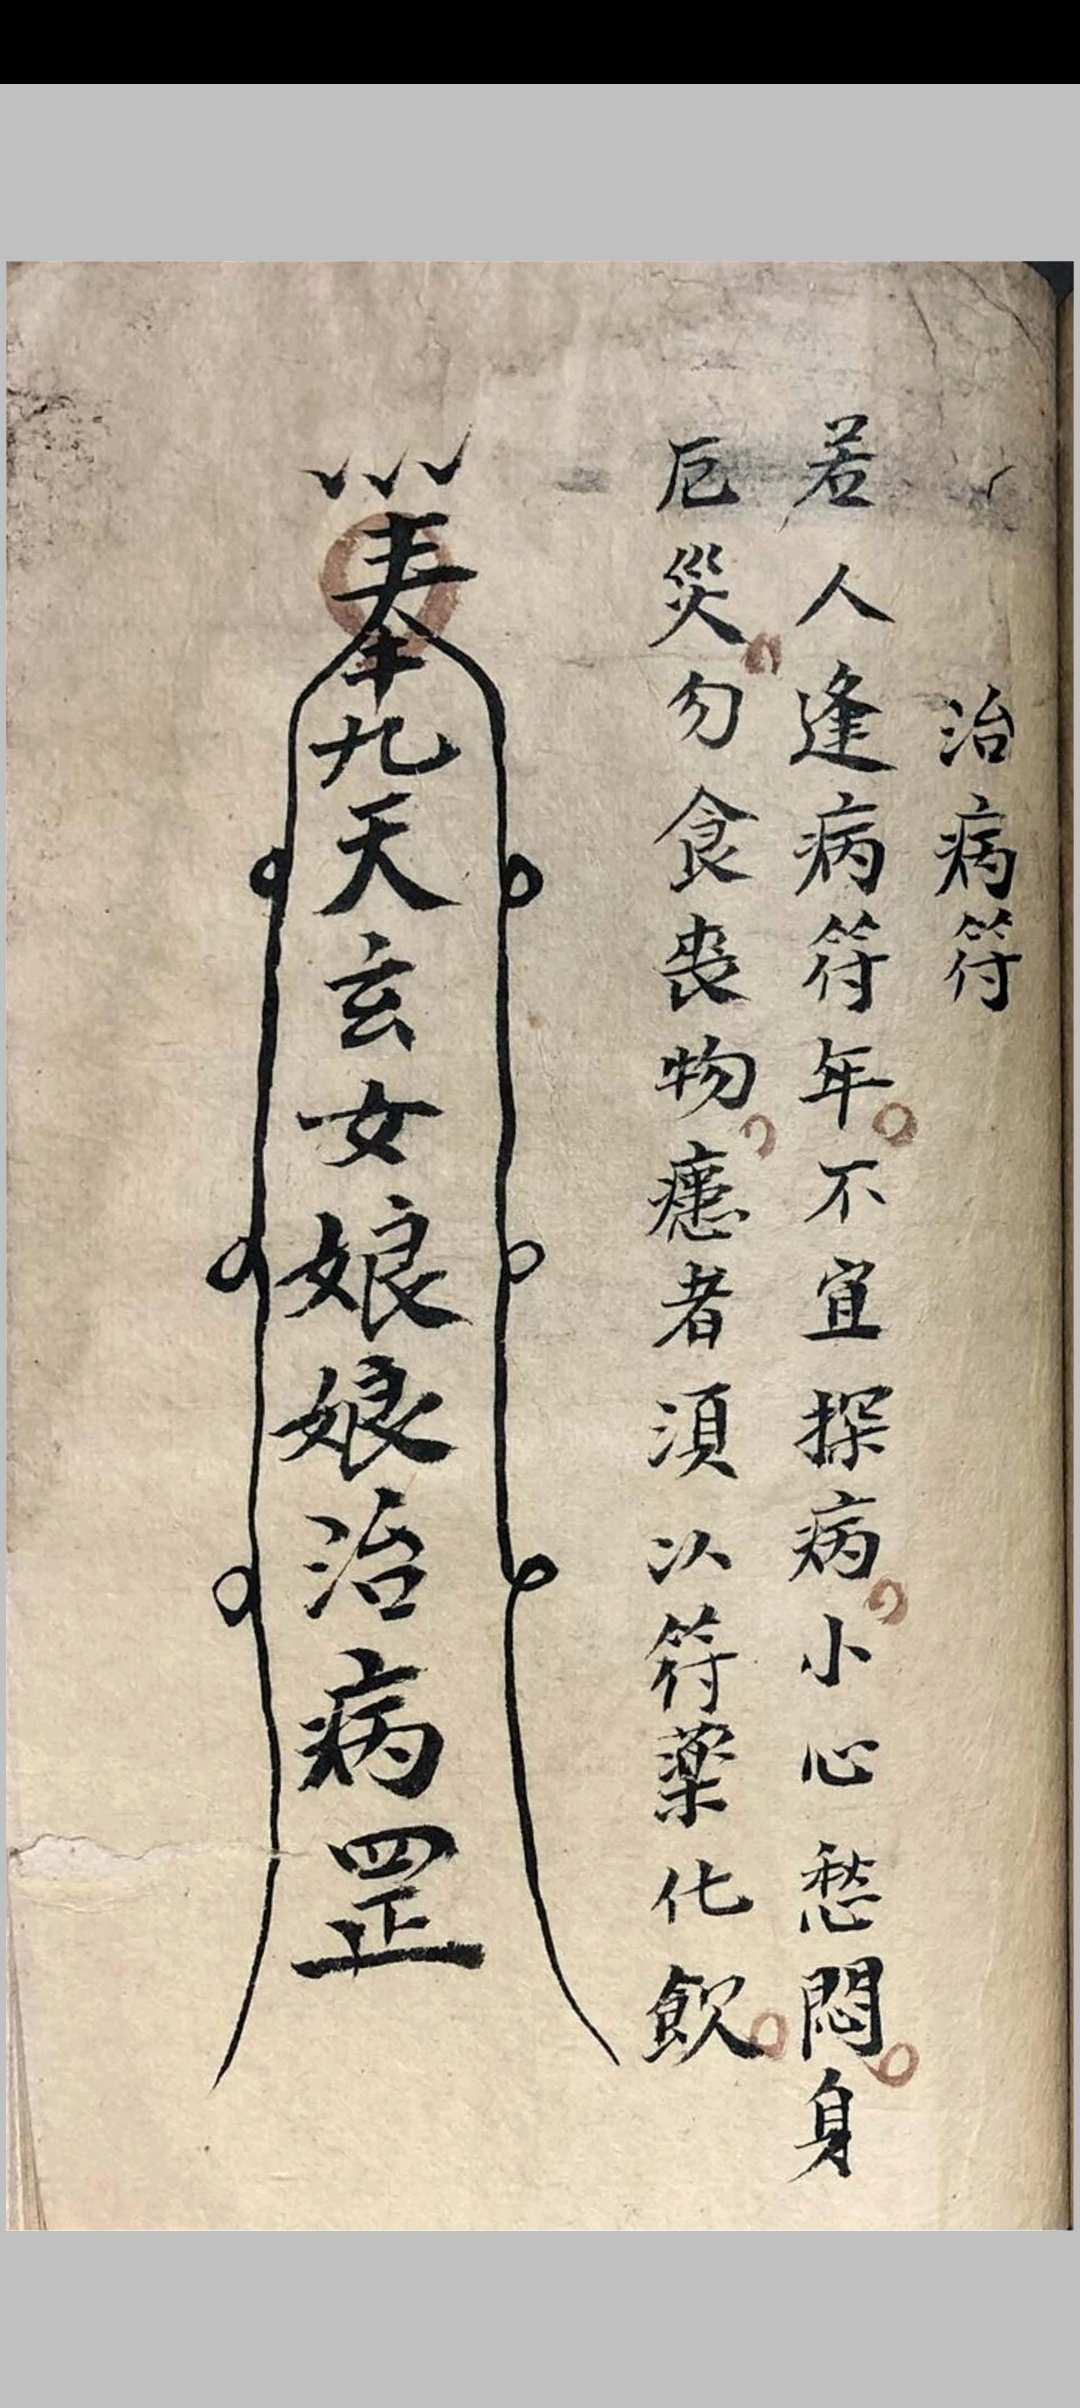 治病符
若人逢病符年不宜探病小心愁悶身
厄災勿食喪物瘜者須以符藥化飲
奉九天玄女娘娘治病罡